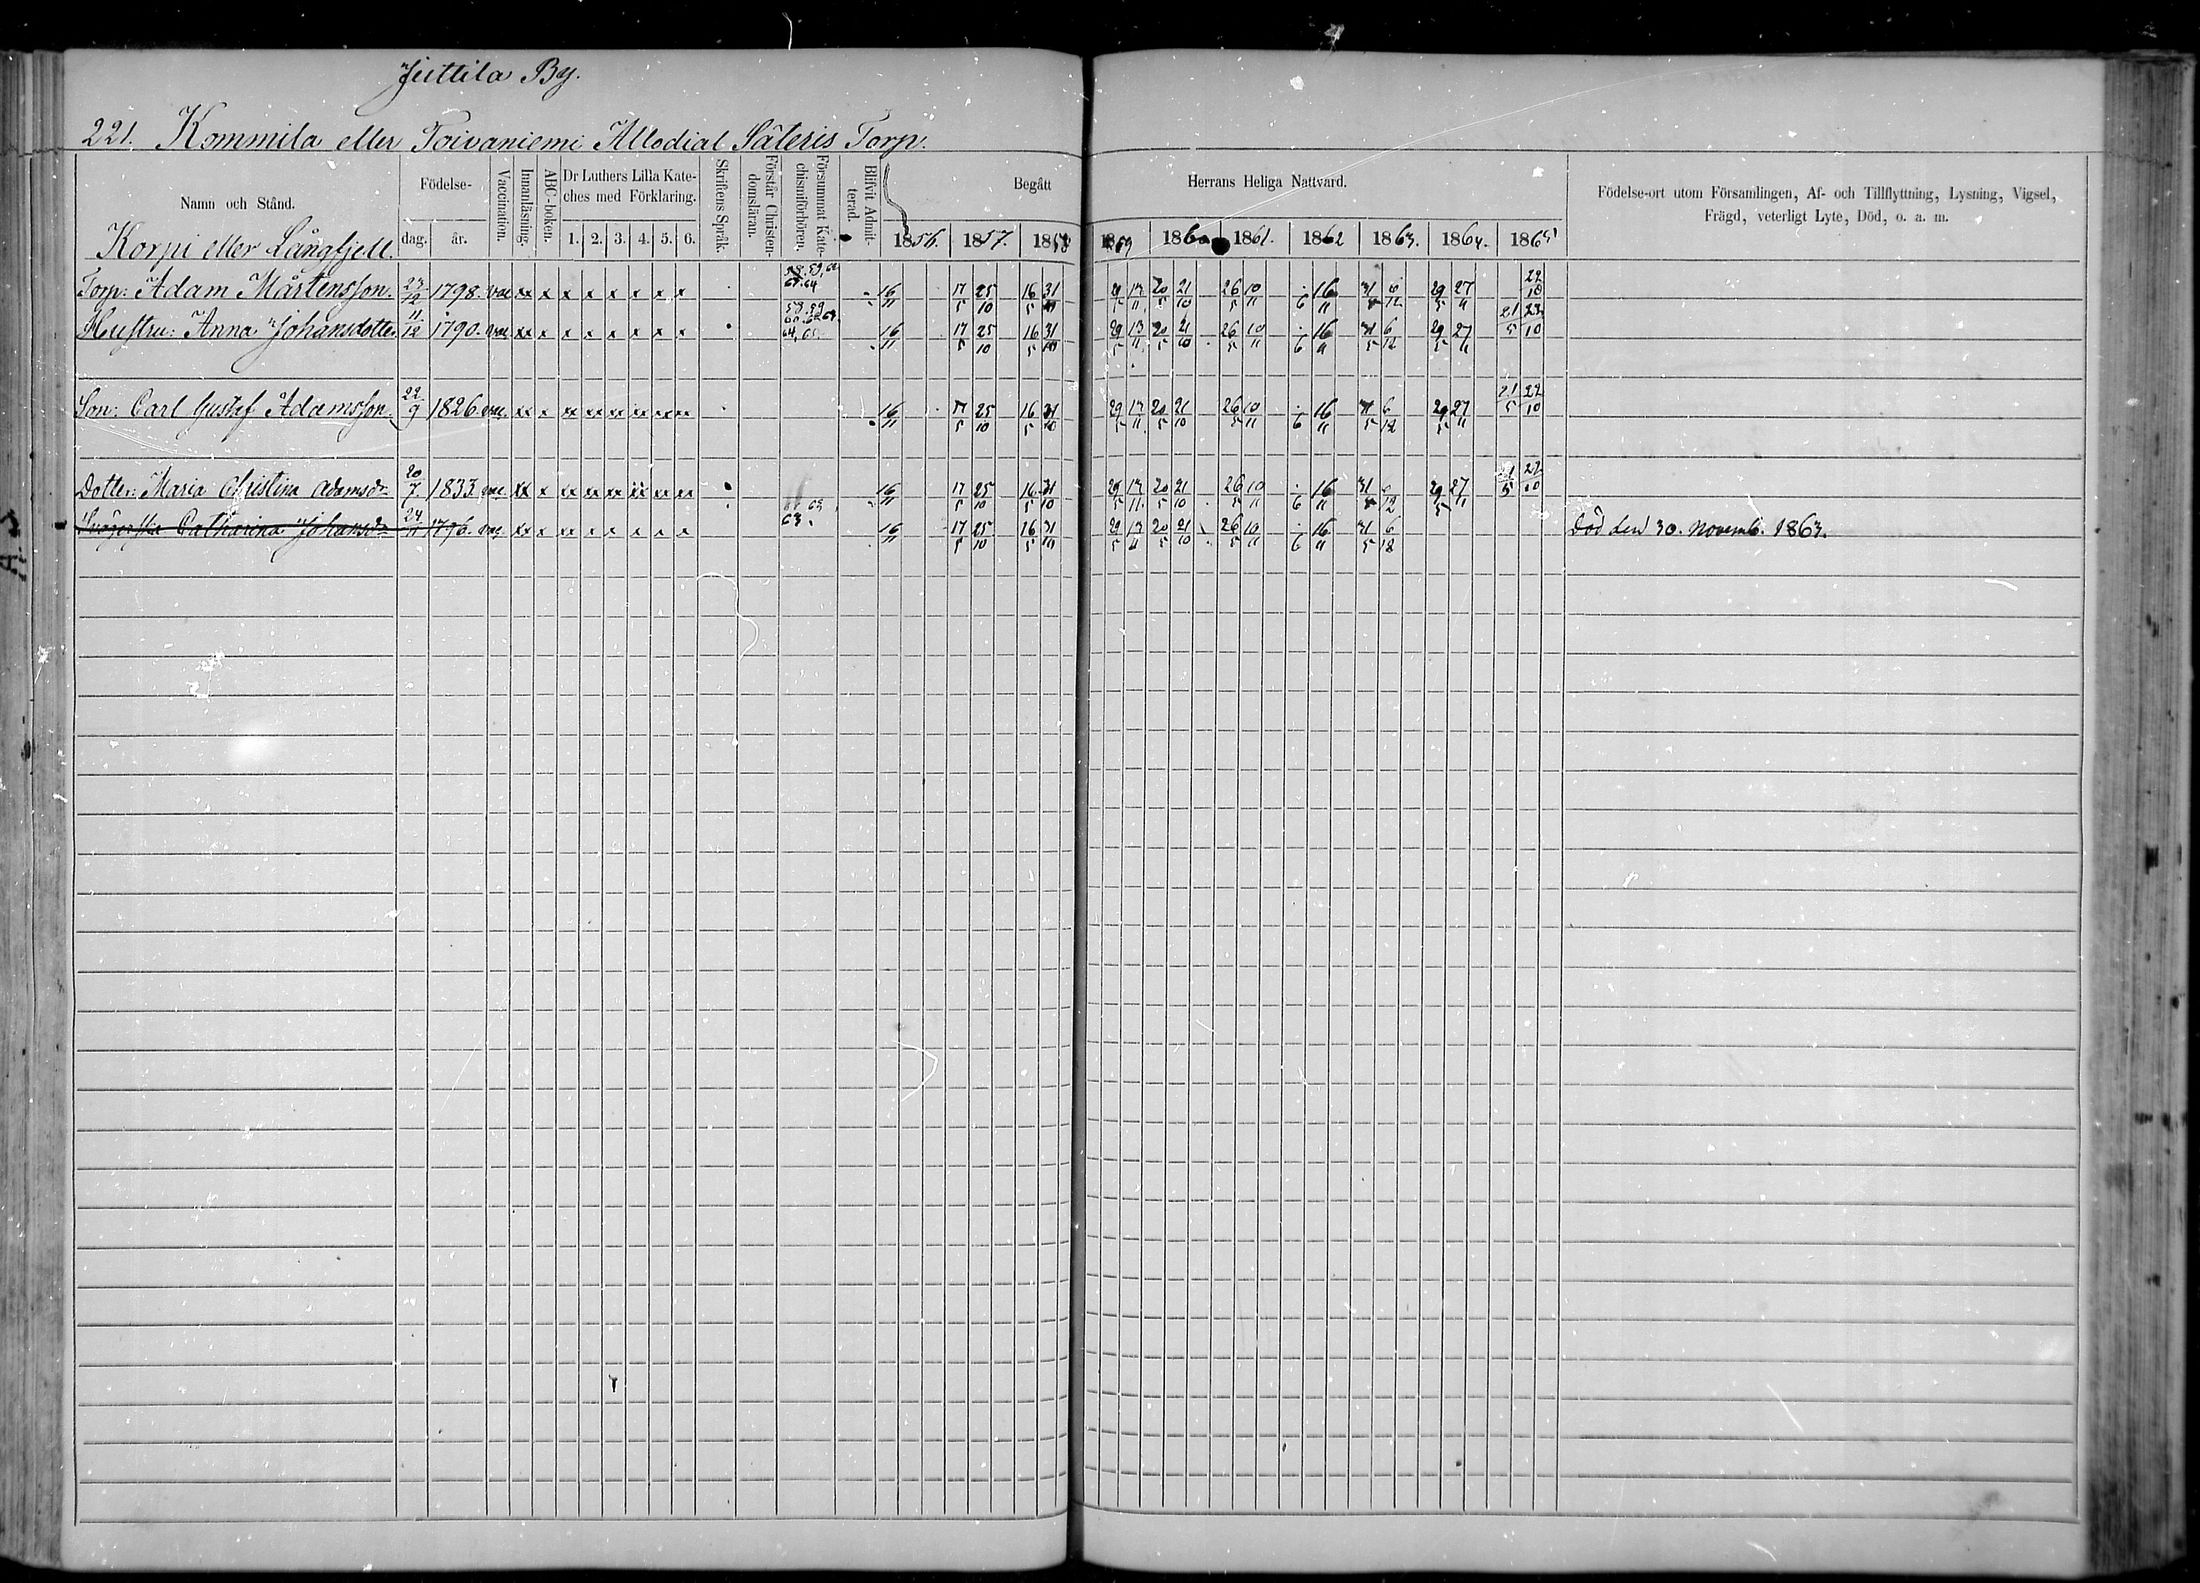 Juttila By.
221. Kommila eller Toivaniemi Allodial Säteris Torp.
Namn och Stånd. Födelse- dag. år. Vaccination. Innanläsning. ABC-boken. Dr Luthers Lilla Kateches med Förklaring. 1. 2. 3. 4. 5. 6. Skriftens Språk. Förstår Christendomsläran. Försummat Katechismiförhören. Blifvit Admitterad. Begått Herrans Heliga Nattvard. Födelse-ort utom Församlingen, Af- och Tillflyttning, Lysning, Vigsel, Frägd, veterligt Lyte, Död, o. a. m.
1856. 1857. 1858 1859 1860 1861. 1862 1863. 1864. 1865
Korpi eller Långfjell.
Torp: Adam Mårtensson. 1798. vac x x x x x x x x 16/11 17/5 25/10 16/5 31/10 29/5 13/11 20/5 21/10 26/5 10/11 6 16/11 31/5 6/12 29/5 27/11 22/10
Hustru: Anna Johansdotter 11/12 1790. vac x x x x x x x x 58. 59 64, 65. 16/11 17/5 25/10 16/5 31/10 29/5 13/11 20/5 21/10 26/5 10/11 6 16/11 31/5 6/12 29/5 27/11 21/5 22/10
Son: Carl Gustaf Adamsson. 22/9 1826. vac. xx x xx xx xx xx xx xx 16/11 17/5 25/10 16/5 31/10 29/5 13/11 20/5 21/10 26/5 10/11 6 16/11 31/5 6/12 29/5 27/11 21/5 22/10
Dotter: Maria Christina Adamsdr 20/7 1833. vac. xx x xx xx xx xx xx xx 16/11 17/5 25/10 16/5 31/10 29/5 13/11 20/5 21/10 26/5 10/11 6 16/11 31/5 6/12 29/5 27/11 21/5 22/10
Catharina Johansdr 24/11 1796. vac. xx x xx x x x x x 63. 16/11 17/5 25/10 16/5 31/10 29/5 13/11 20/5 21/10 26/5 10/11 6 16/11 31/5 6/12 Död den 30. Novemb. 1863.